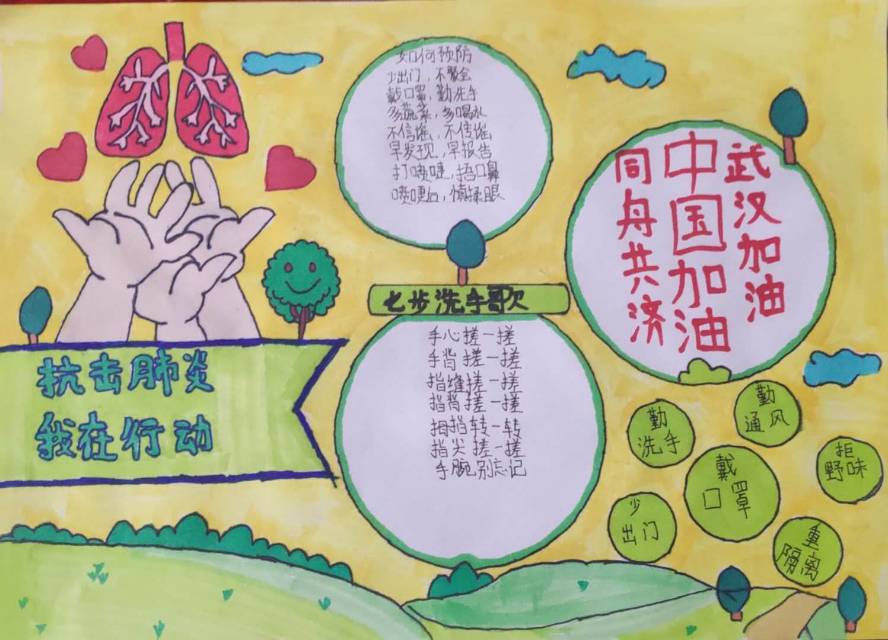 如何预防
少出门，不聚会
戴口罩，勤洗手
多蔬菜，多喝水
不信谣，不传谣
早发现，早报告
打喷嚏，捂口鼻
喷嚏后，慎揉眼
武汉加油
中国加油
同舟共济
七步洗手歌
手心搓一搓
手背搓一搓
指缝搓一搓
指背搓一搓
拇指转一转
指尖搓一搓
手腕别忘记
抗击肺炎
我在行动
勤洗手
勤通风
戴口罩
拒野味
少出门
重隔离